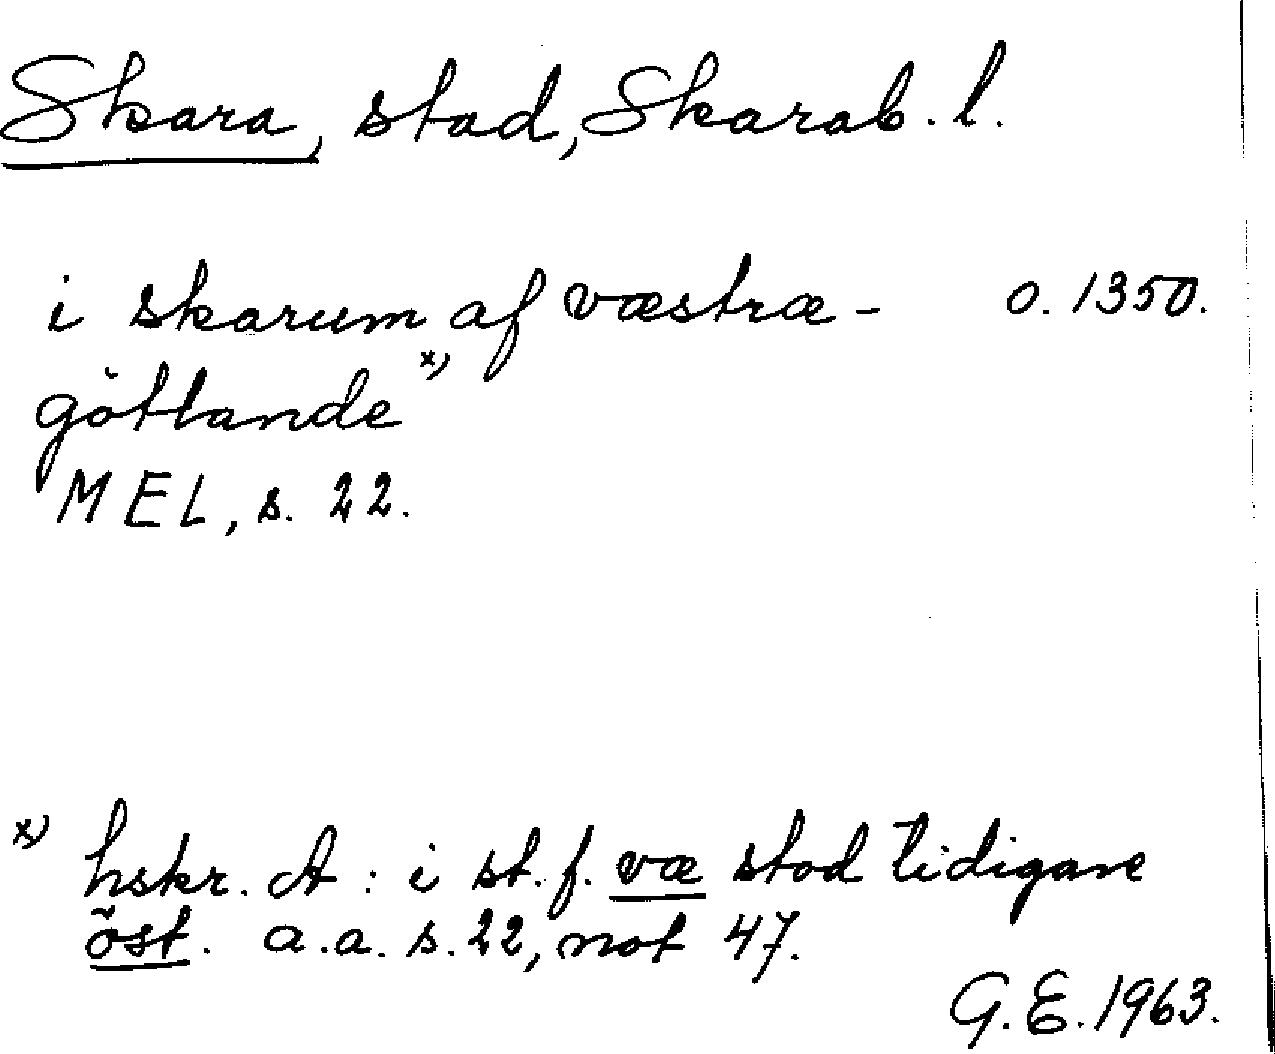 Skara, stad, Skarab. l.
i skarum af væstræ- o. 1350.
götlande x)
MEL, s. 22.
x) hskr. A : i st. f. væ stod tidigare
öst. a.a. s. 22, not 47.
G.E. 1963.